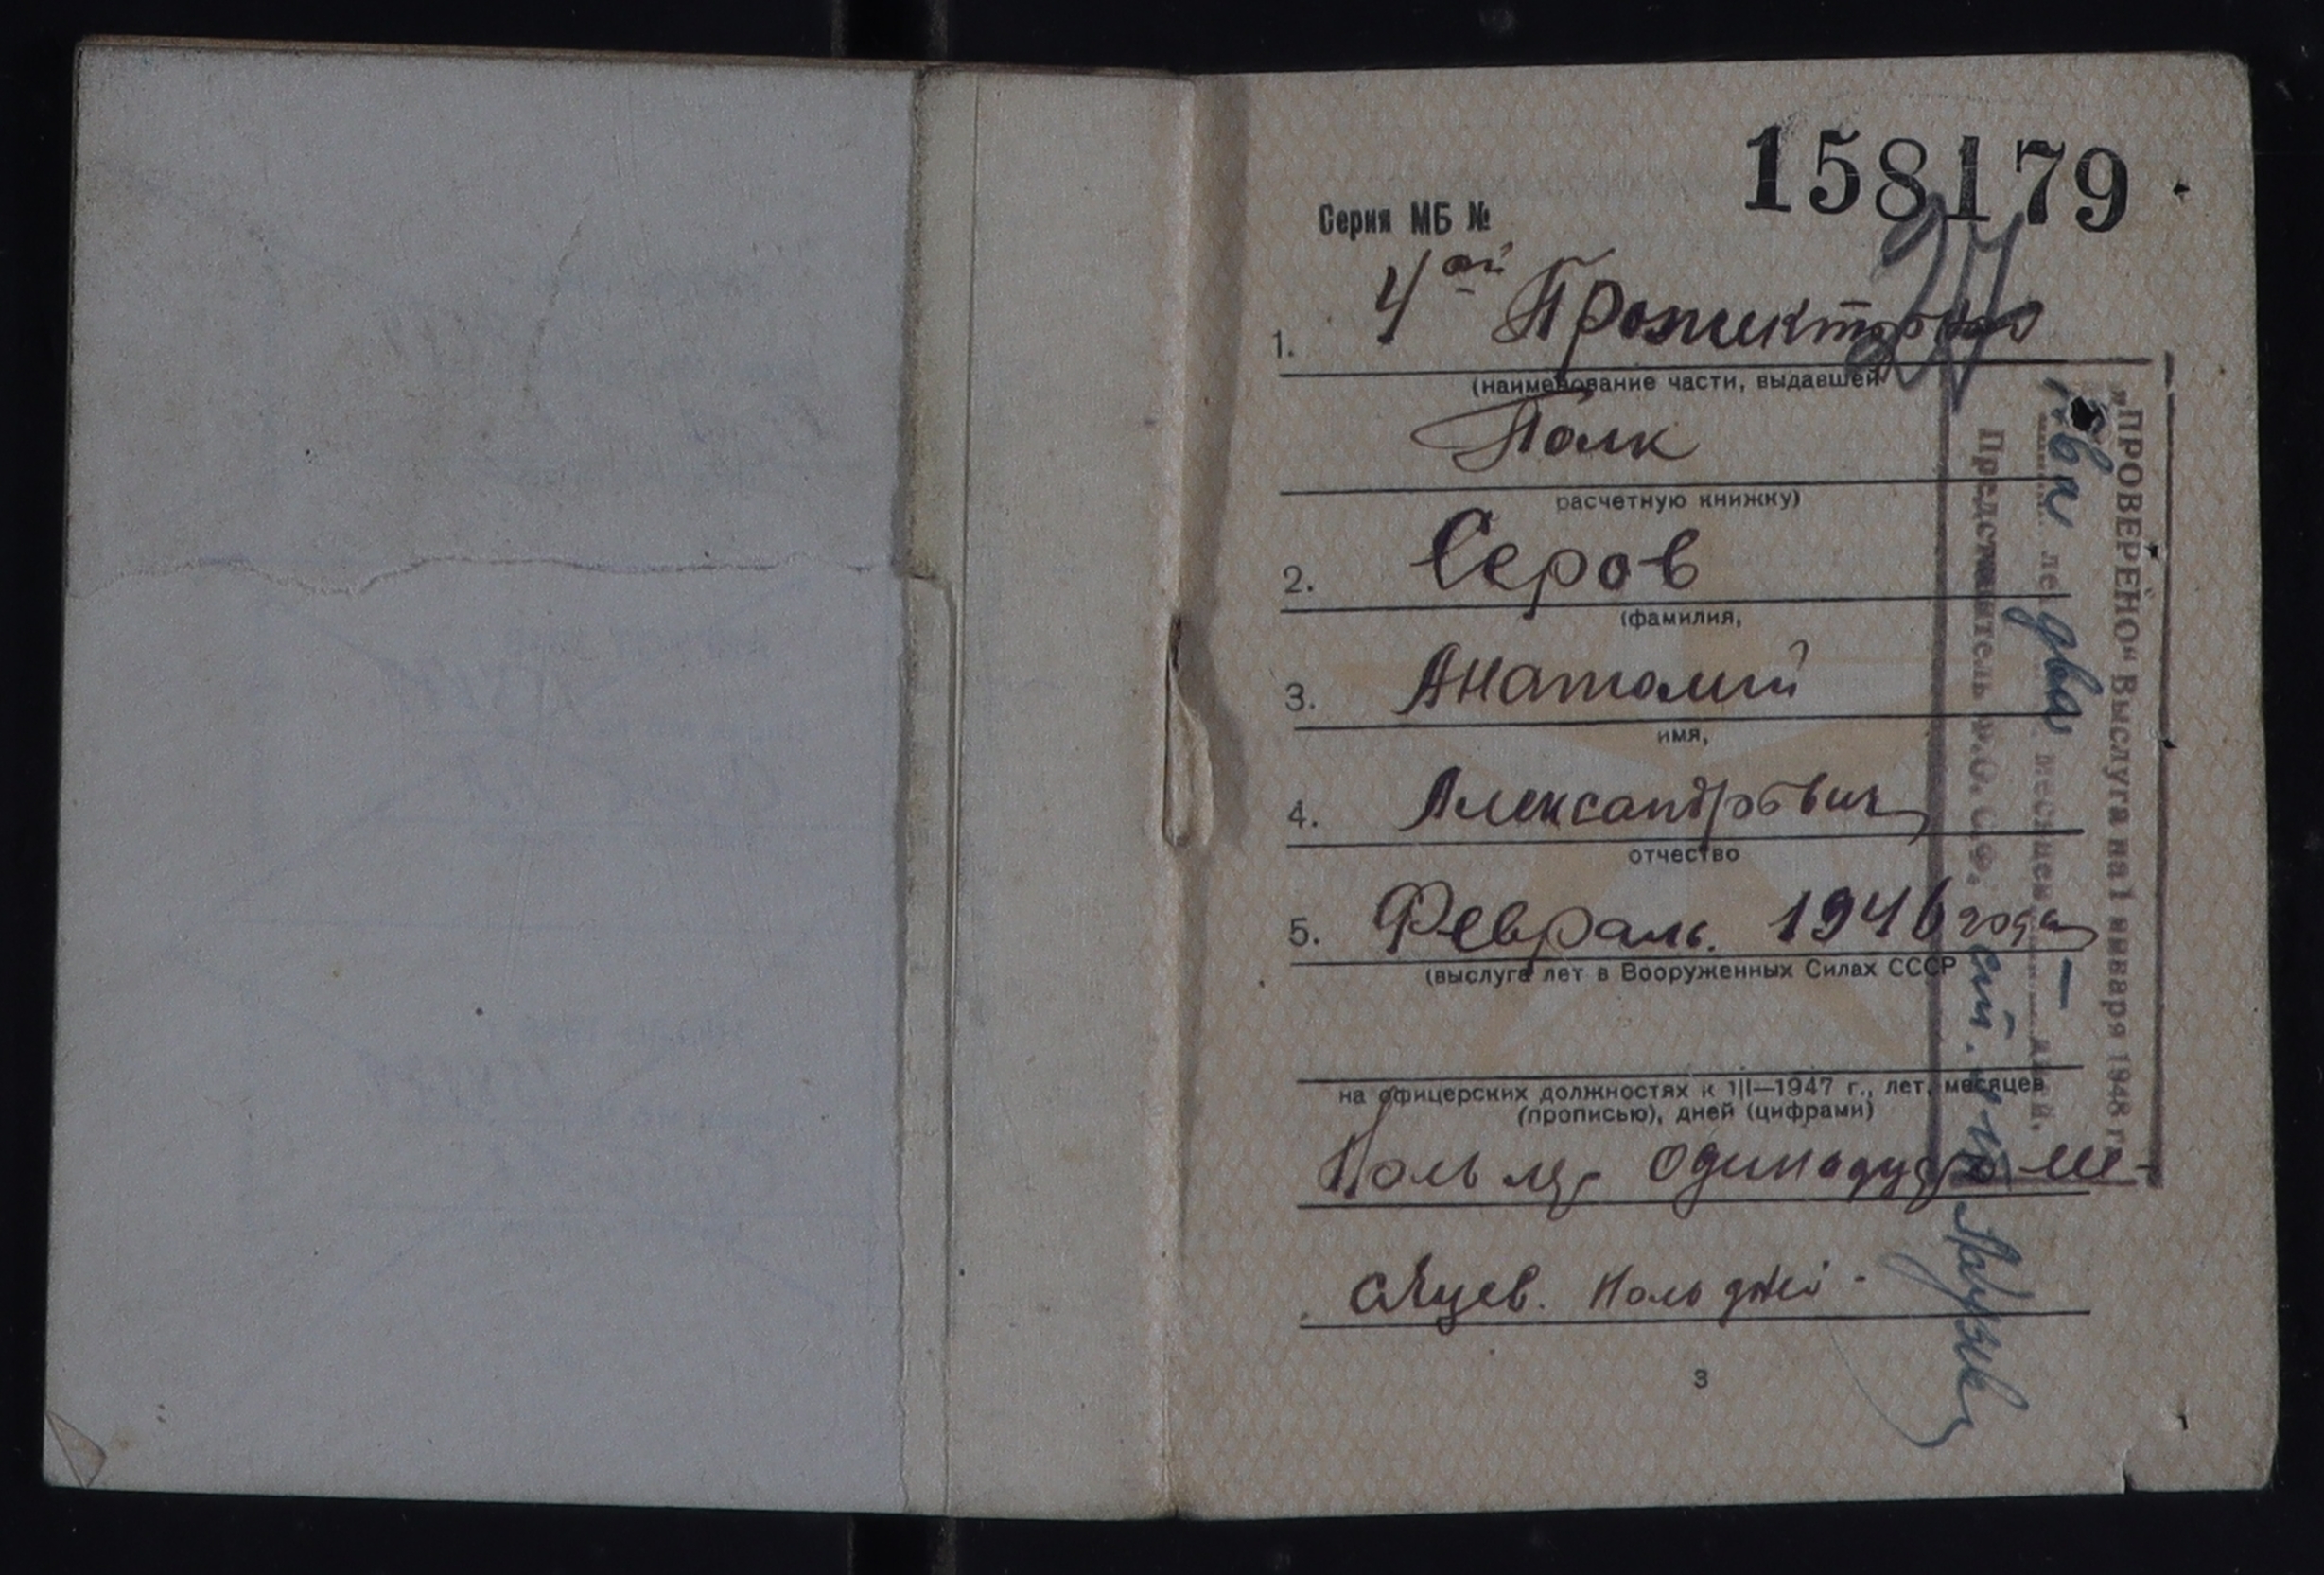 158179
Серия МБ №
4ый Прожекторно
1.
(наименование части, выдавшей
Полк
расчетную книжку)
2. Серов
(фамилия,
3. Анатолий
имя,
4. Александрович
отчество
5. Февраль. 1946 года
(выслуга лет в Вооруженных Силах СССР
на офицерских должностях к 1|II—1947 г., лет, месяцев
(прописью), дней (цифрами)
Ноль одинадцать ме-
сяцев. Ноль дней -
3
„ПРОВЕРЕНО“ Выслуга на 1 января 1948 г.
два лет два месяцев — дней.
Представитель Ф.О. С.Ф.